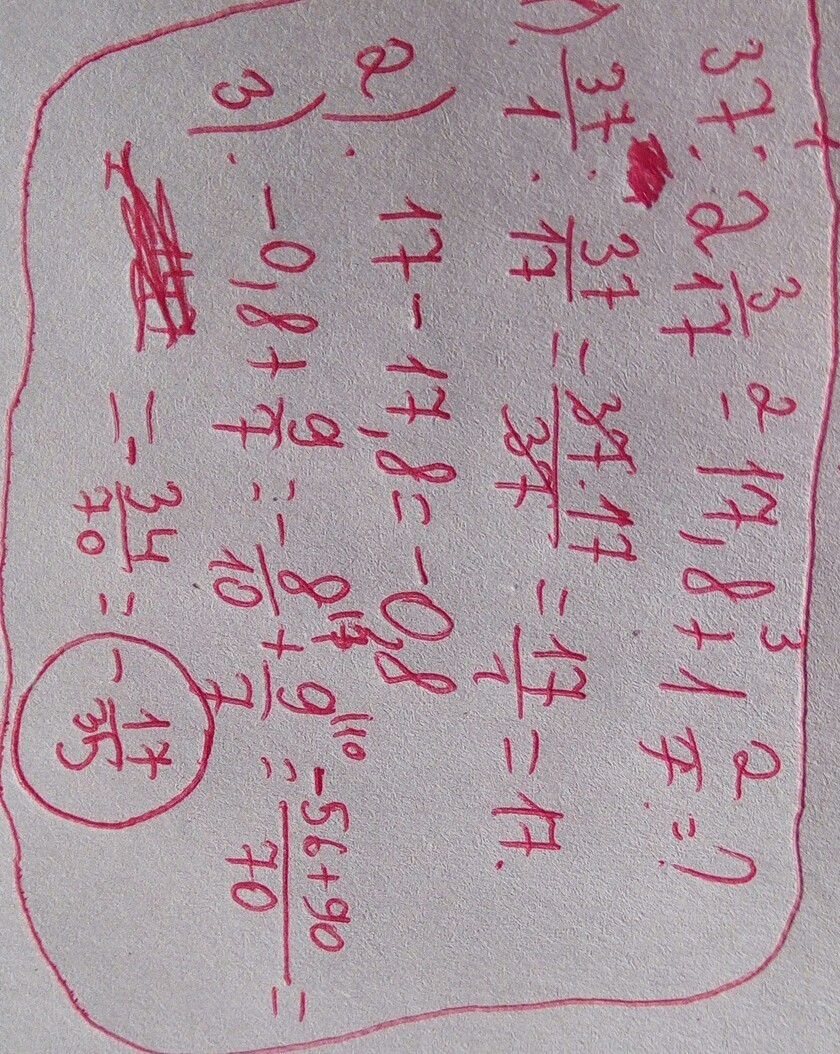 37 : 2 3/17 - 17,8 + 1 2/7 = ?
1). 37/1 : 37/17 = 37·17/37 = 17/1 = 17.
2). 17 - 17,8 = -0,8
3). -0,8 + 9/7 = -8/10 + 9/7 = -56+90/70 =
= -34/70 = -17/35